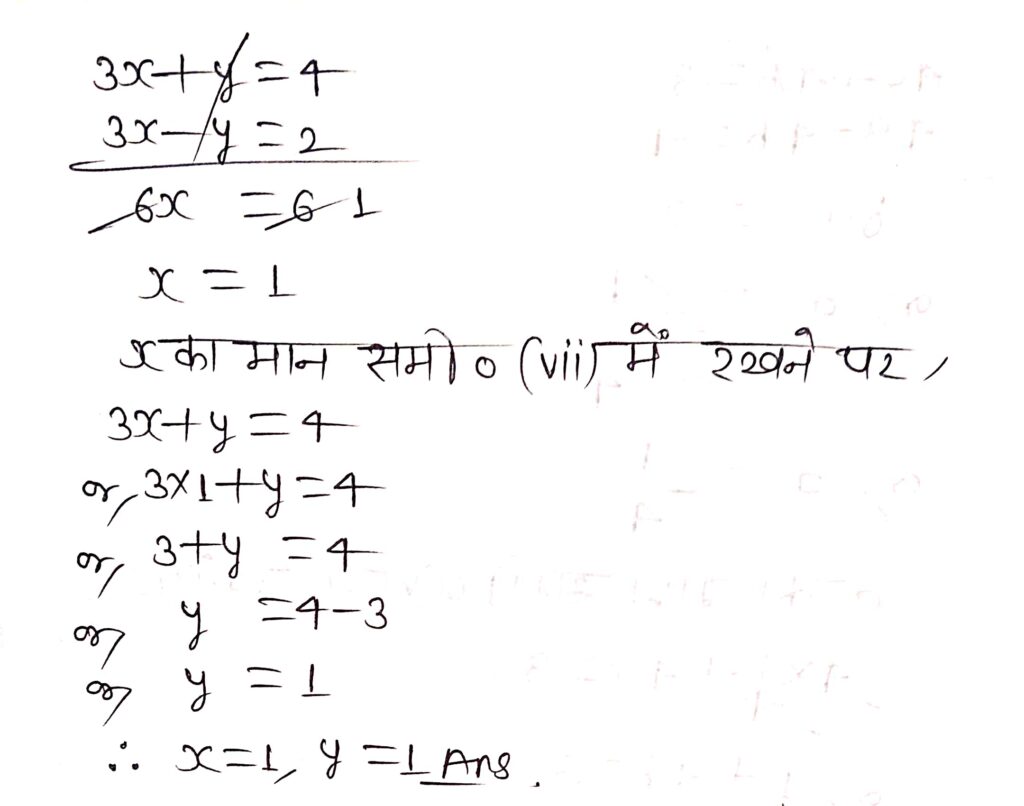 3x+y=4
3x-y=2
6x =6 1
x = 1
x का मान समी० (vii) में रखने पर,
3x+y=4
or, 3×1+y=4
or, 3+y =4
or, y =4-3
or, y =1
∴ x=1, y=1 Ans.